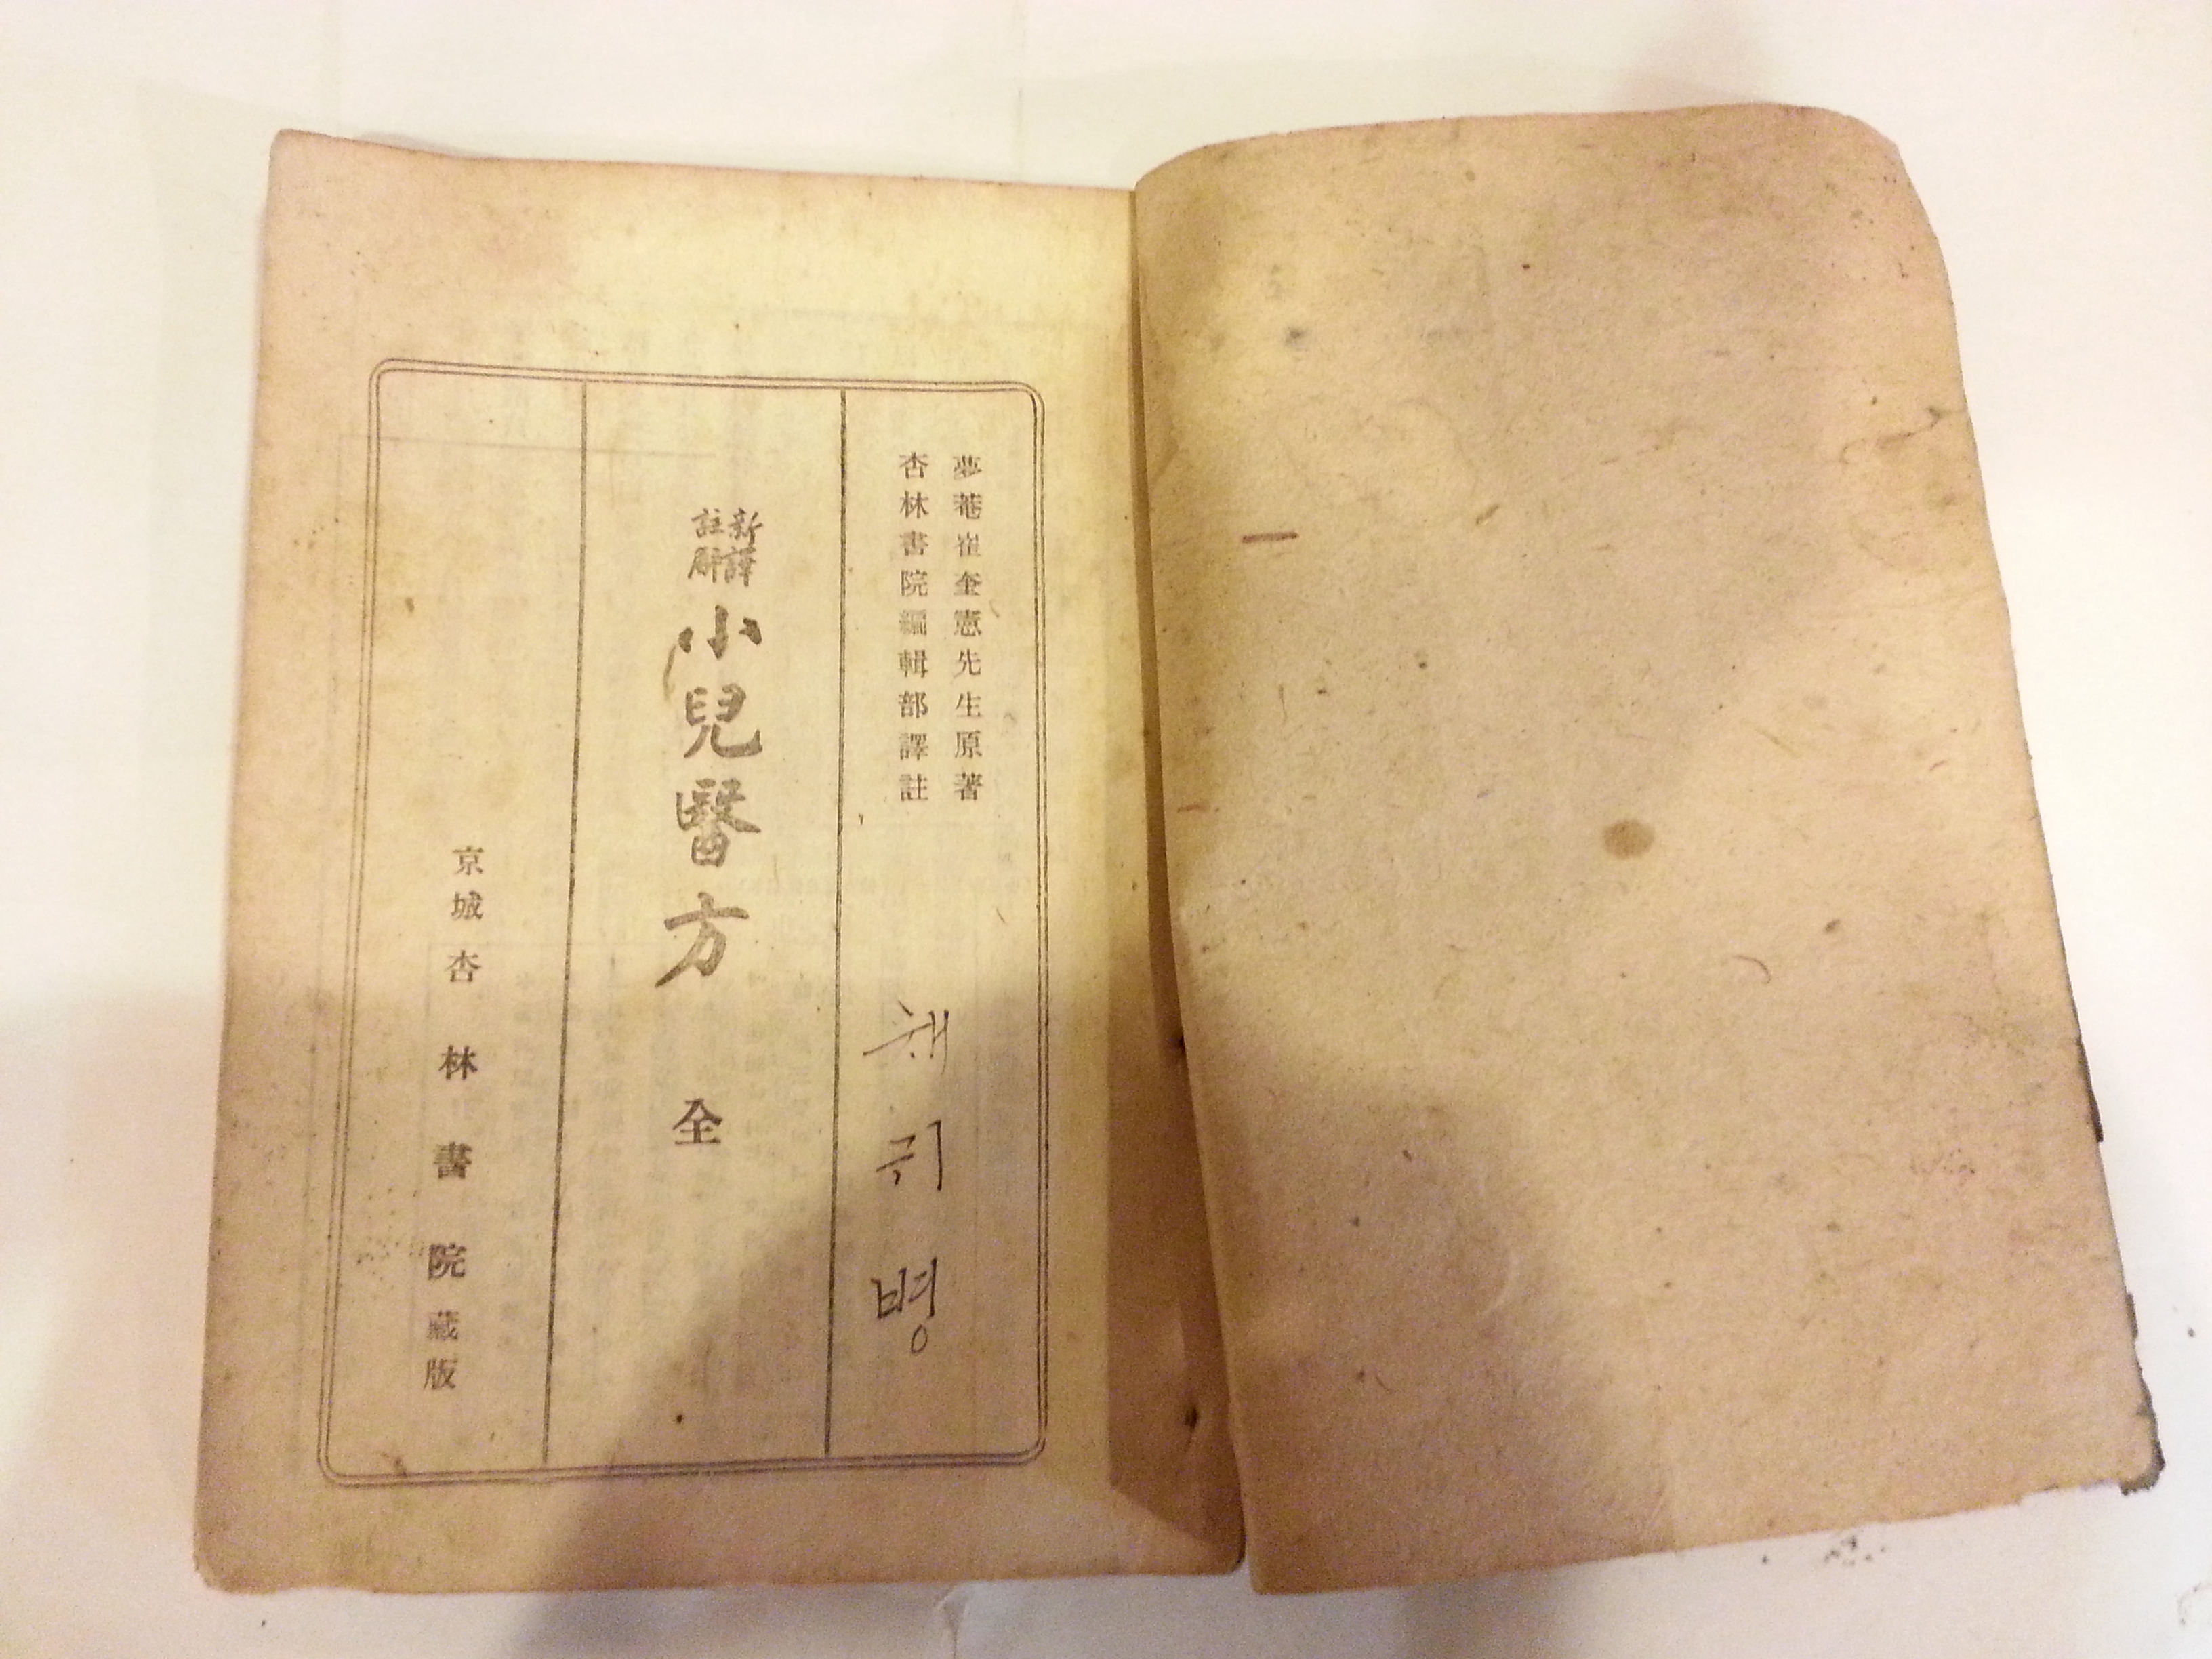 夢菴崔奎憲先生原著
杏林書院編輯部譯註
채귀병
新譯
註解
小兒醫方 全
京城杏林書院藏版